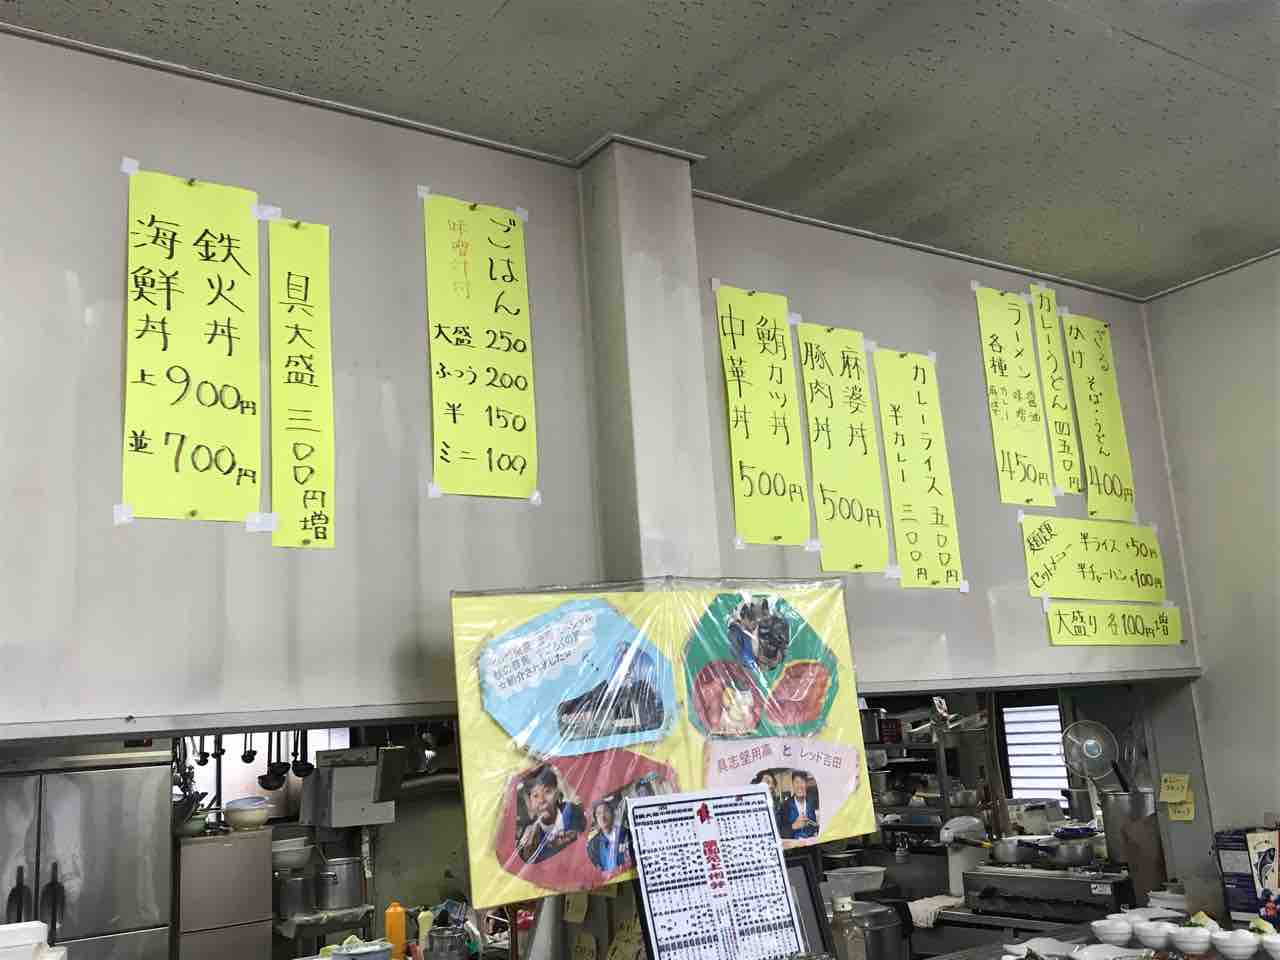 鉄火丼
海鮮丼
上 900円
並 700円
具大盛 三〇〇円増
ごはん
味噌汁付
大盛 250
ふつう 200
半 150
ミニ 100
鮪カツ丼
中華丼
500円
麻婆丼
豚肉丼
500円
カレーライス 五〇〇円
半カレー 三〇〇円
ラーメン
各種
醤油
味噌
カレー
麻婆
450円
カレーうどん 四五〇円
ざる
かけ
そば・うどん
400円
麺類
セットメニュー
半ライス +50円
半チャーハン +100円
大盛り 各100円増
☆紹介されました☆
具志堅用高 と レッド吉田